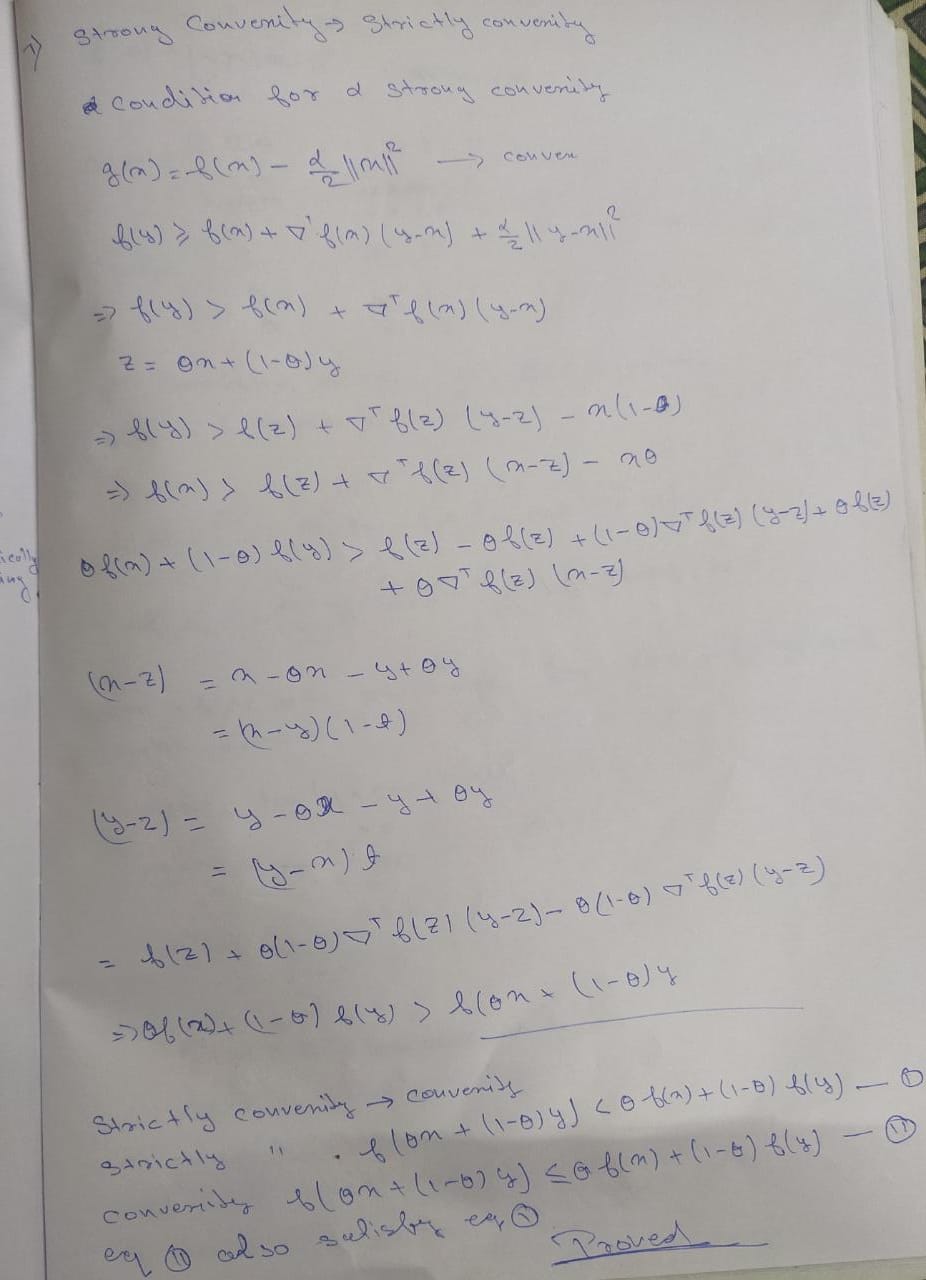 1) Strong Convexity → Strictly convexity
α condition for α strong convexity
g(x) = f(x) - α/2 ||x||² → convex
f(y) ≥ f(x) + ∇ᵀf(x) (y-x) + α/2 ||y-x||²
⇒ f(y) > f(x) + ∇ᵀf(x) (y-x)
z = θx + (1-θ)y
⇒ f(y) > f(z) + ∇ᵀf(z) (y-z) - x(1-θ)
⇒ f(x) > f(z) + ∇ᵀf(z) (x-z) - xθ
θf(x) + (1-θ) f(y) > f(z) - θf(z) + (1-θ)∇ᵀf(z) (y-z) + θf(z)
+ θ∇ᵀf(z) (x-z)
(x-z) = x - θx - y + θy
= (x-y)(1-θ)
(y-z) = y - θx - y + θy
= (y-x)θ
= f(z) + θ(1-θ)∇ᵀf(z) (y-z) - θ(1-θ) ∇ᵀf(z) (y-z)
⇒ θf(x) + (1-θ) f(y) > f(θx + (1-θ)y
Strictly convexity → convexity
strictly " . f(θx + (1-θ)y) < θf(x) + (1-θ) f(y) — ①
convexity f(θx + (1-θ)y) ≤ θf(x) + (1-θ) f(y) — ⑪
eq ⑪ also satisfy eq ①
Proved